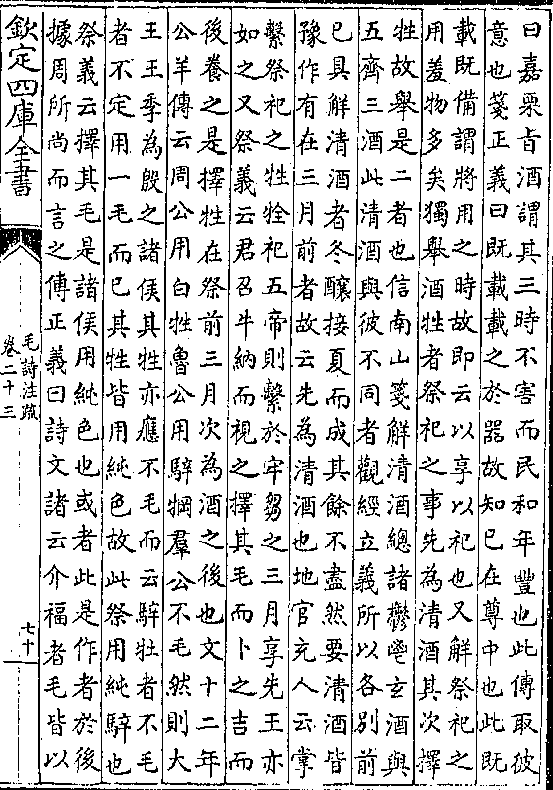 曰嘉栗旨酒謂其三時不害而民和年豐也此傳取彼
意也箋正義曰既載載之於器故知已在尊中也此既
載既備謂將用之時故即云以享以祀也又解祭祀之
用羞物多矣獨舉酒牲者祭祀之事先為清酒其次擇
牲故舉是二者也信南山箋解清酒總諸鬱鬯玄酒與
五齊三酒此清酒與彼不同者觀經立義所以各別前
已具解清酒者冬釀接夏而成其餘不盡然要清酒皆
豫作有在三月前者故云先為清酒也地官充人云掌
繫祭祀之牲牷祀五帝則繫於牢芻之三月享先王亦
如之又祭義云君召牛納而視之擇其毛而卜之吉而
後養之是擇牲在祭前三月次為酒之後也文十二年
公羊傳云周公用白牲魯公用騂犅羣公不毛然則大
王王季為殷之諸侯其牲亦應不毛而云騂牡者不毛
者不定用一毛而已其牲皆用純色故此祭用純騂也
祭義云擇其毛是諸侯用純色也或者此是作者於後
據周所尚而言之傳正義曰詩文諸云介福者毛皆以
欽定四庫全書
毛詩注疏
卷二十三
七十